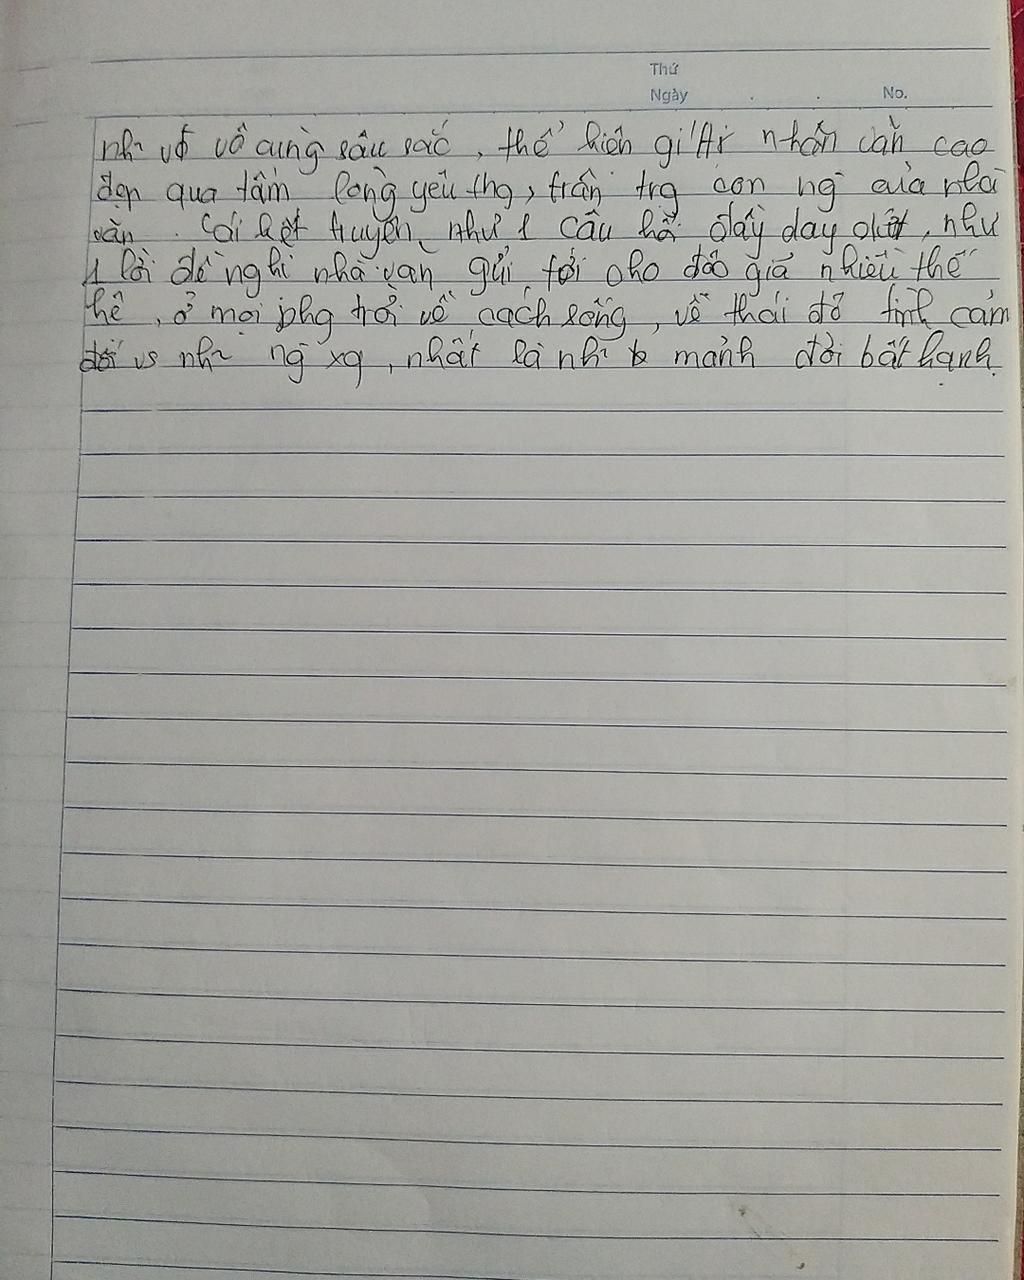 Thứ
Ngày . . No.
nh~ vđ vô cùng sâu sắc, thể hiện giá trị nhân văn cao
đẹp qua tấm lòng yêu thg, trân trg con ng của nhà
văn. Cái kết truyện như 1 câu hỏi đầy day dứt, như
1 lời đề nghị nhà văn gửi tới cho độc giả nhiều thế
hệ, ở mọi phg trời về cách sống, về thái độ tình cảm
đối vs nh~ ng xq, nhất là nh~ mảnh đời bất hạnh.